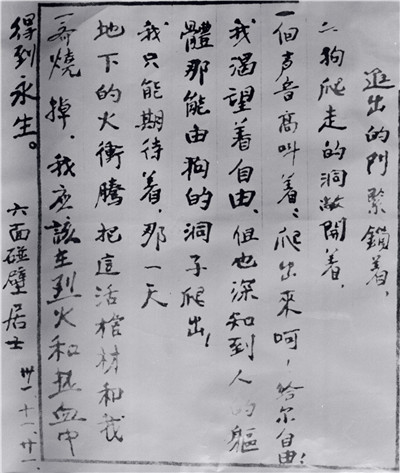 進出的門緊鎖着、
二狗爬走的洞敞開着、
一個声音高叫着:爬出來呵,給尔自由!
我渴望着自由、但也深知到人的軀
體那能由狗的洞子爬出!
我只能期待着,那一天
地下的火衝騰把這活棺材和我
一斋燒掉、我应該在烈火和热血中
得到永生。
六面碰壁居士 卅一.十一.廿一.